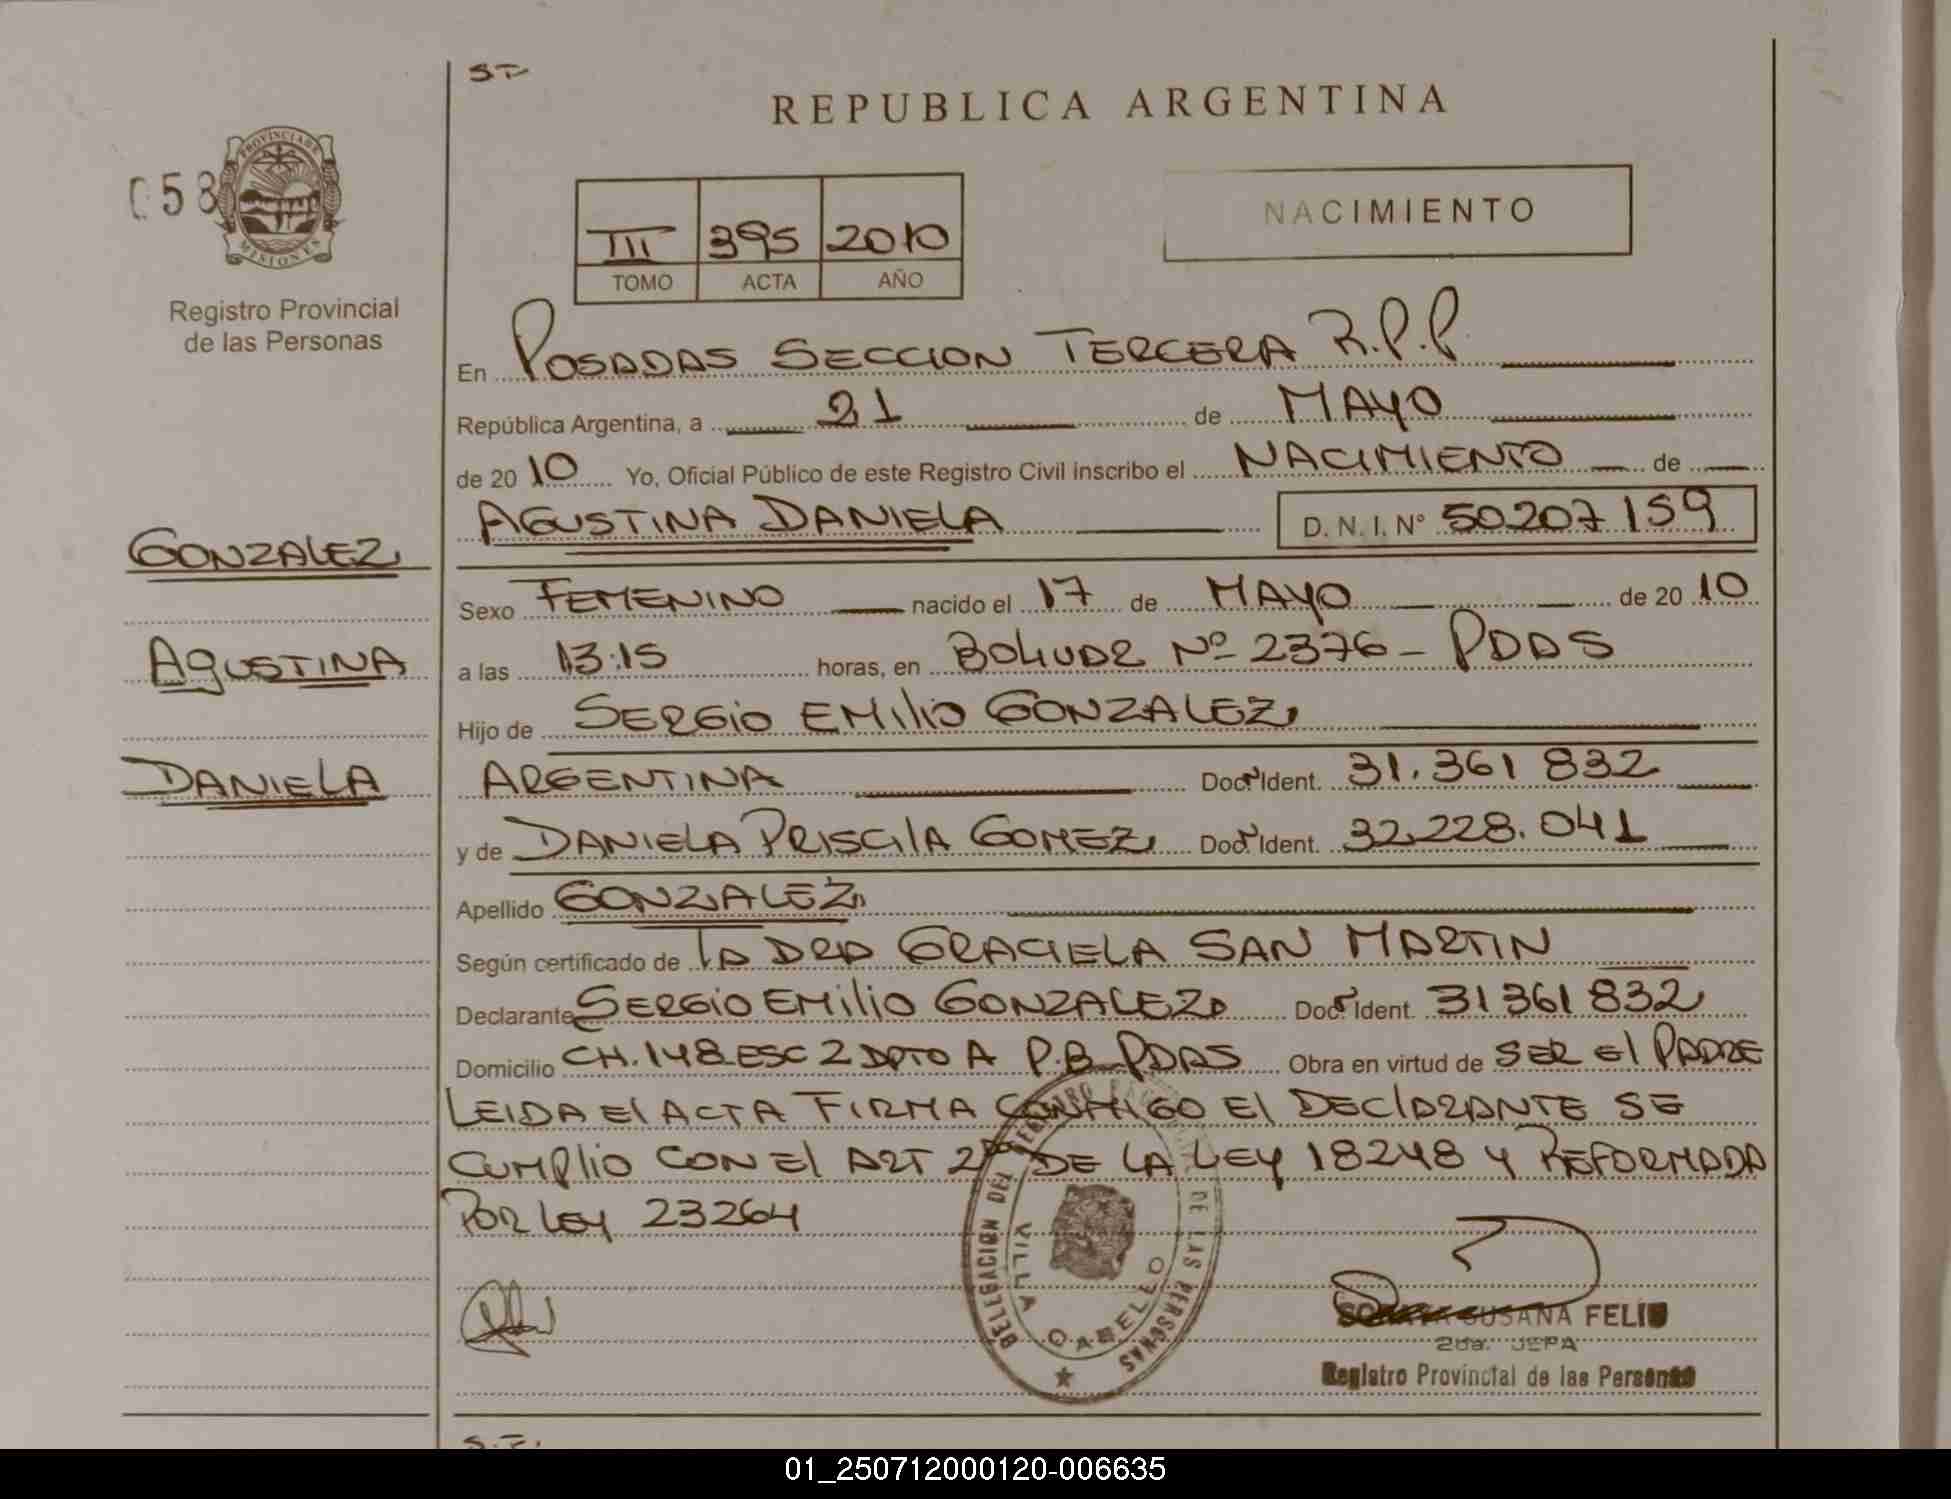 S-T-
REPUBLICA ARGENTINA
058
PROVINCIA DE MISIONES
Registro Provincial
de las Personas
III 395 2010
TOMO ACTA AÑO
NACIMIENTO
En POSADAS SECCION TERCERA R.P.P.
República Argentina, a 21 de MAYO
de 2010 Yo, Oficial Público de este Registro Civil inscribo el NACIMIENTO de
AGUSTINA DANIELA D. N. I. N° 50207159
GONZALEZ
AGUSTINA
DANIELA
Sexo FEMENINO nacido el 17 de MAYO de 2010
a las 13:15 horas, en Nº 2376 - PDAS
Hijo de SERGIO EMILIO GONZALEZ
ARGENTINA Doc. Ident. 31.361 832
y de DANIELA PRISCILA GOMEZ Doc. Ident. 32.228.041
Apellido GONZALEZ
Según certificado de LA DRA GRACIELA SAN MARTIN
Declarante SERGIO EMILIO GONZALEZ Doc. Ident. 31361832
Domicilio CH.148 ESC 2 DPTO A P.B-PDAS Obra en virtud de SER El PADRE
LEIDA El ACTA FIRMA CONMIGO El DECLARANTE SE
CUMPLIO CON El ART 2do DE LA LEY 18248 Y REFORMADA
POR LEY 23264
DELEGACION DEL REGISTRO PROVINCIAL DE LAS PERSONAS
VILLA CABELLO
SUSANA FELIU
2da. JEFA
Registro Provincial de las Personas
S.T.
01_250712000120-006635